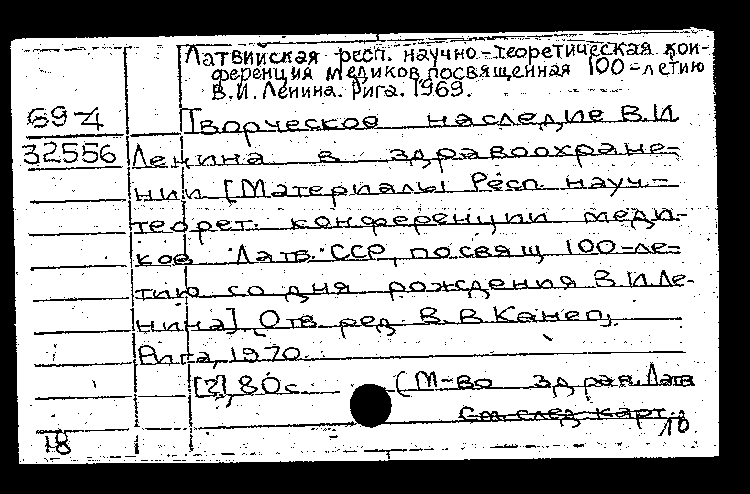 Латвийская респ. научно-теоретическая кон-
ференция медиков, посвященная 100-летию
В.И. Ленина. Рига. 1969.
69-4
Творческое наследие В.И.
32556
Ленина в здравоохране-
нии. [Материалы Респ. науч.-
теорет. конференции меди-
ков Латв. ССР, посвящ. 100-ле-
тию со дня рождения В.И.Ле-
нина]. Отв. ред. В.В.Канеп,
Рига, 1970.
[2], 80 с. (М-во здрав. Латв
См. след. карт.
18
10